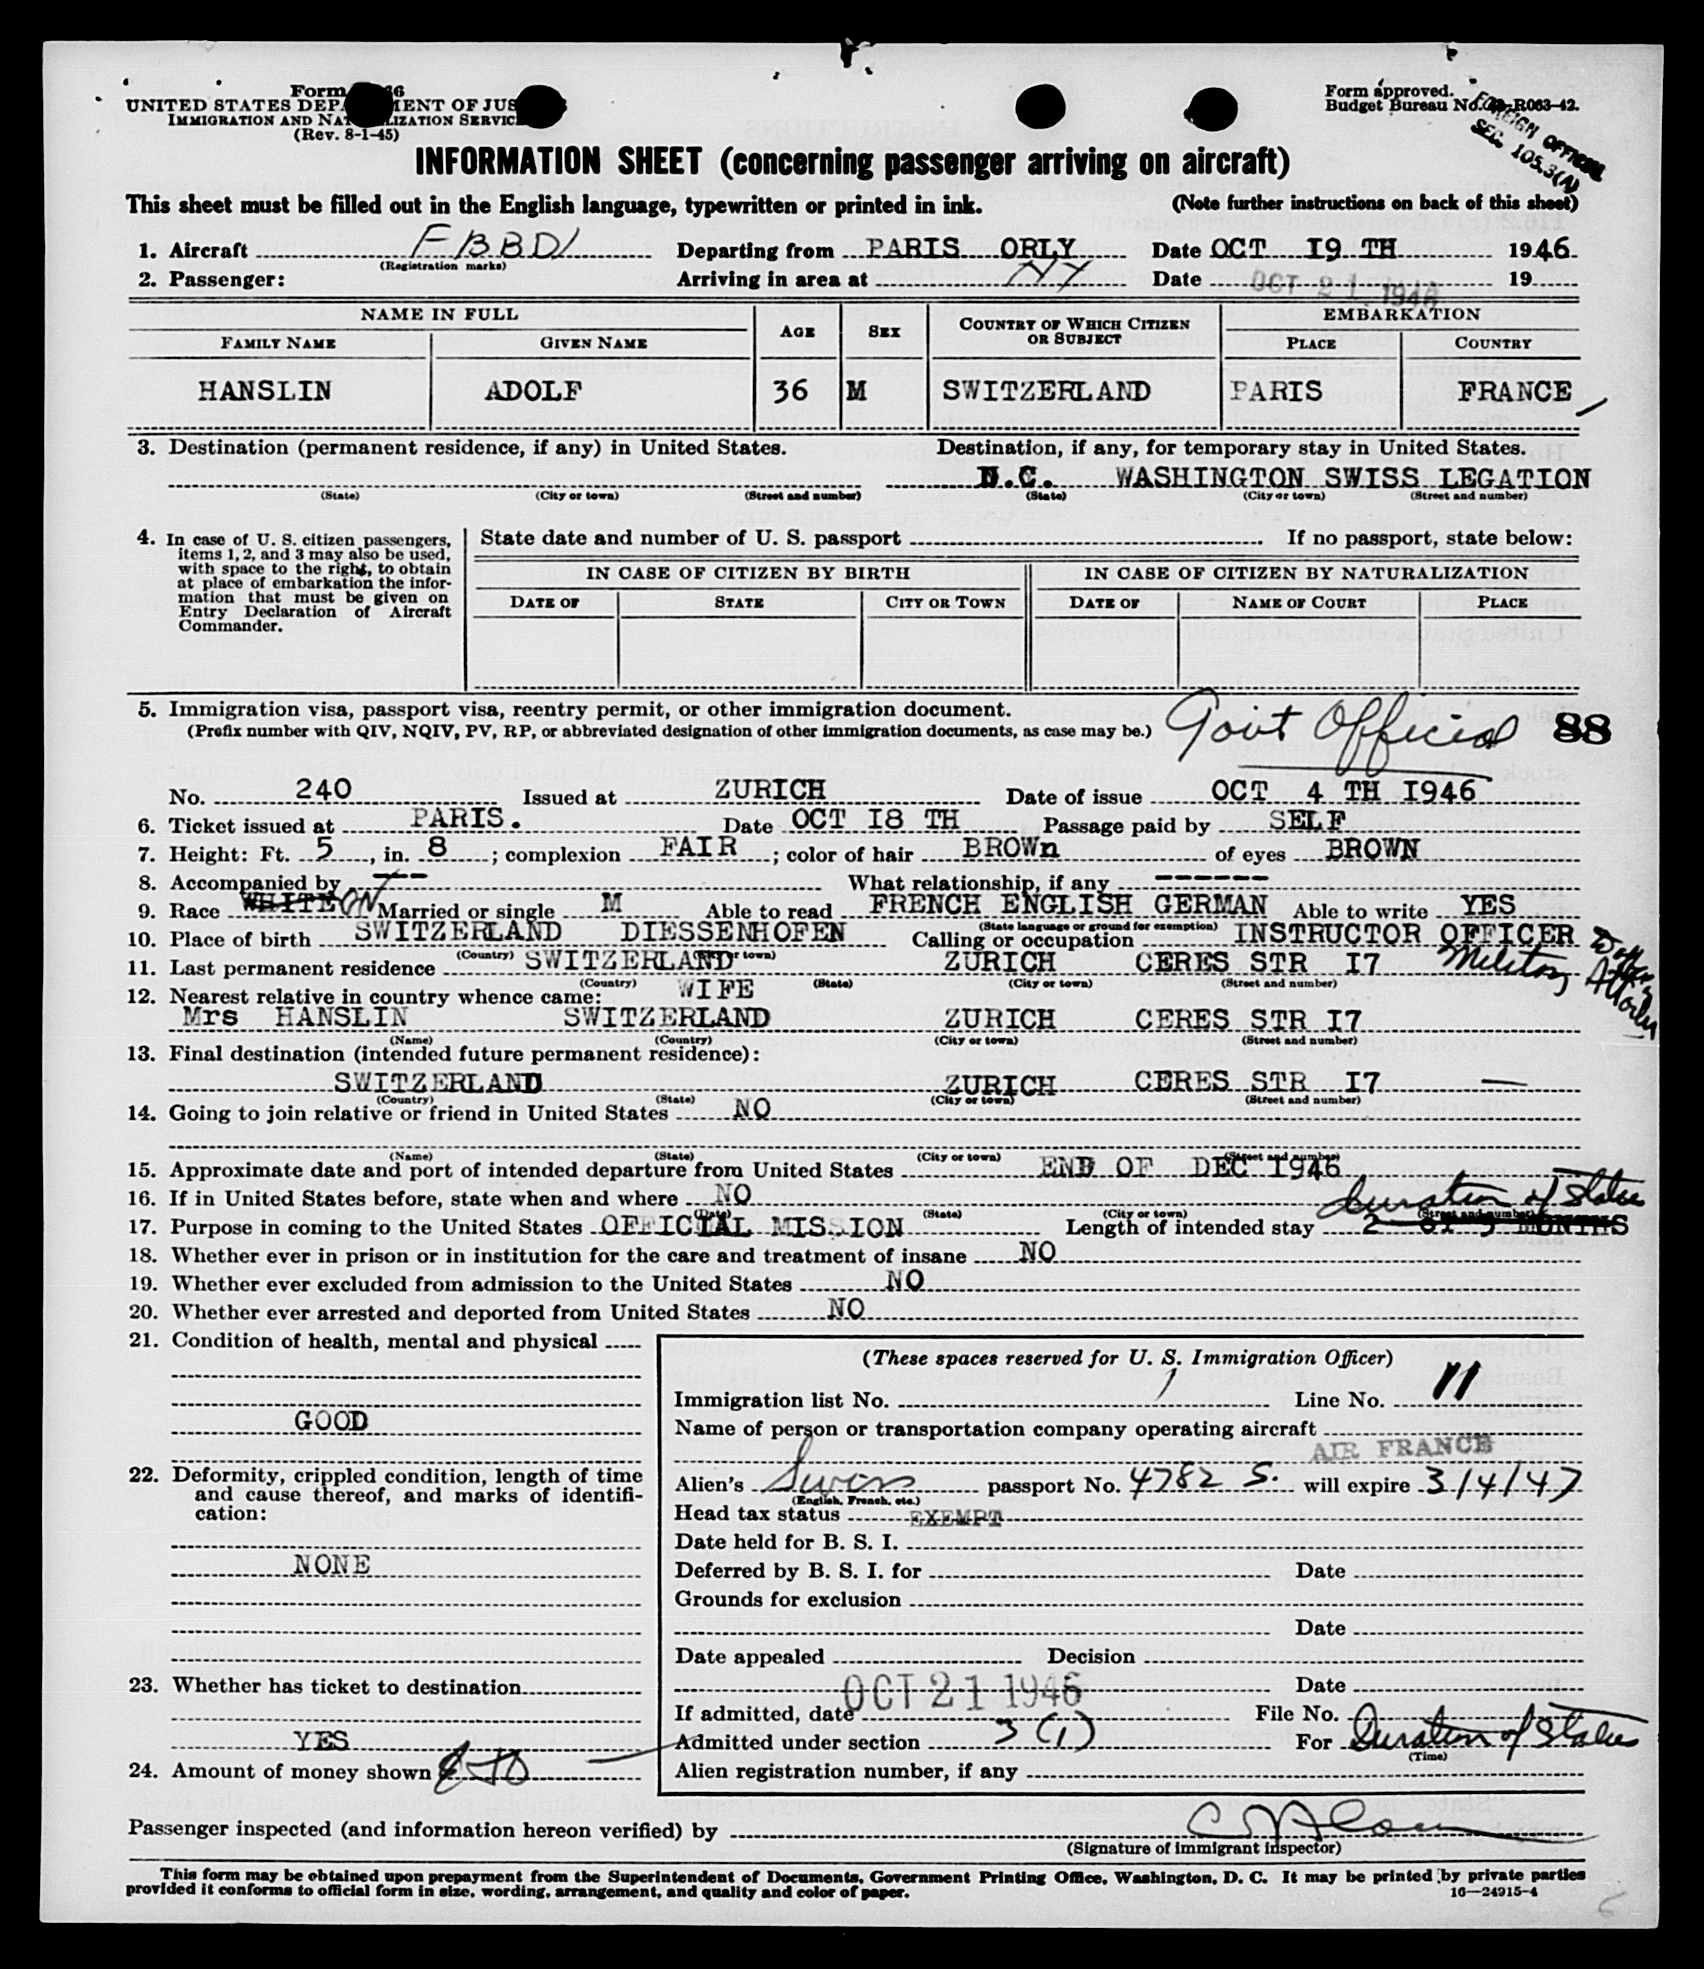 Form
UNITED STATES DEP MENT OF JUS
IMMIGRATION AND NAT LIZATION SERVIC
(Rev. 8-1-45)
Form approved.
Budget Bureau No. R063-42.
FOREIGN OFFICIAL
SEC. 105.3(A)
INFORMATION SHEET (concerning passenger arriving on aircraft)
This sheet must be filled out in the English language, typewritten or printed in ink. (Note further instructions on back of this sheet)
1. Aircraft FBBDI Departing from PARIS ORLY Date OCT I9 TH 1946.
(Registration marks)
2. Passenger: Arriving in area at NY Date OCT 21 1946 19
NAME IN FULL AGE SEX COUNTRY OF WHICH CITIZEN OR SUBJECT EMBARKATION
FAMILY NAME GIVEN NAME PLACE COUNTRY
HANSLIN ADOLF 36 M SWITZERLAND PARIS FRANCE
3. Destination (permanent residence, if any) in United States. Destination, if any, for temporary stay in United States.
D.C. WASHINGTON SWISS LEGATION
(State) (City or town) (Street and number) (State) (City or town) (Street and number)
4. In case of U. S. citizen passengers, items 1, 2, and 3 may also be used, with space to the right, to obtain at place of embarkation the information that must be given on Entry Declaration of Aircraft Commander.
State date and number of U. S. passport If no passport, state below:
IN CASE OF CITIZEN BY BIRTH IN CASE OF CITIZEN BY NATURALIZATION
DATE OF STATE CITY OR TOWN DATE OF NAME OF COURT PLACE
5. Immigration visa, passport visa, reentry permit, or other immigration document.
(Prefix number with QIV, NQIV, PV, RP, or abbreviated designation of other immigration documents, as case may be.) Govt Official 88
No. 240 Issued at ZURICH Date of issue OCT 4 TH I946
6. Ticket issued at PARIS. Date OCT I8 TH Passage paid by SELF
7. Height: Ft. 5, in. 8; complexion FAIR; color of hair BROWn of eyes BROWN
8. Accompanied by --- What relationship, if any ------
9. Race WHITE Married or single M Able to read FRENCH ENGLISH GERMAN Able to write YES
(State language or ground for exemption)
10. Place of birth SWITZERLAND DIESSENHOFEN Calling or occupation INSTRUCTOR OFFICER
(Country) (City or town)
Military
11. Last permanent residence SWITZERLAND ZURICH CERES STR I7
(Country) (State) (City or town) (Street and number)
12. Nearest relative in country whence came: WIFE
Mrs HANSLIN SWITZERLAND ZURICH CERES STR I7
(Name) (Country) (City or town) (Street and number)
13. Final destination (intended future permanent residence):
SWITZERLAND ZURICH CERES STR I7
(Country) (State) (City or town) (Street and number)
14. Going to join relative or friend in United States NO
(Name) (State) (City or town) (Street and number)
15. Approximate date and port of intended departure from United States END OF DEC I946
16. If in United States before, state when and where NO
(Date) (State) (City or town) (Street and number)
duration of status
17. Purpose in coming to the United States OFFICIAL MISSION Length of intended stay 2 or 3 MONTHS
18. Whether ever in prison or in institution for the care and treatment of insane NO
19. Whether ever excluded from admission to the United States NO
20. Whether ever arrested and deported from United States NO
21. Condition of health, mental and physical
GOOD
22. Deformity, crippled condition, length of time and cause thereof, and marks of identification:
NONE
23. Whether has ticket to destination
YES
24. Amount of money shown
(These spaces reserved for U. S. Immigration Officer)
Immigration list No. 1 Line No. 11
Name of person or transportation company operating aircraft
AIR FRANCE
Alien's Swiss passport No. 4782 S. will expire 3/4/47
(English, French, etc.)
Head tax status EXEMPT
Date held for B. S. I.
Deferred by B. S. I. for Date
Grounds for exclusion
Date
Date appealed Decision
Date
If admitted, date OCT 21 1946 File No.
Admitted under section 3(1) For Duration of Status
(Time)
Alien registration number, if any
Passenger inspected (and information hereon verified) by
(Signature of immigrant inspector)
This form may be obtained upon prepayment from the Superintendent of Documents, Government Printing Office, Washington, D. C. It may be printed by private parties
provided it conforms to official form in size, wording, arrangement, and quality and color of paper.
16—24915-4